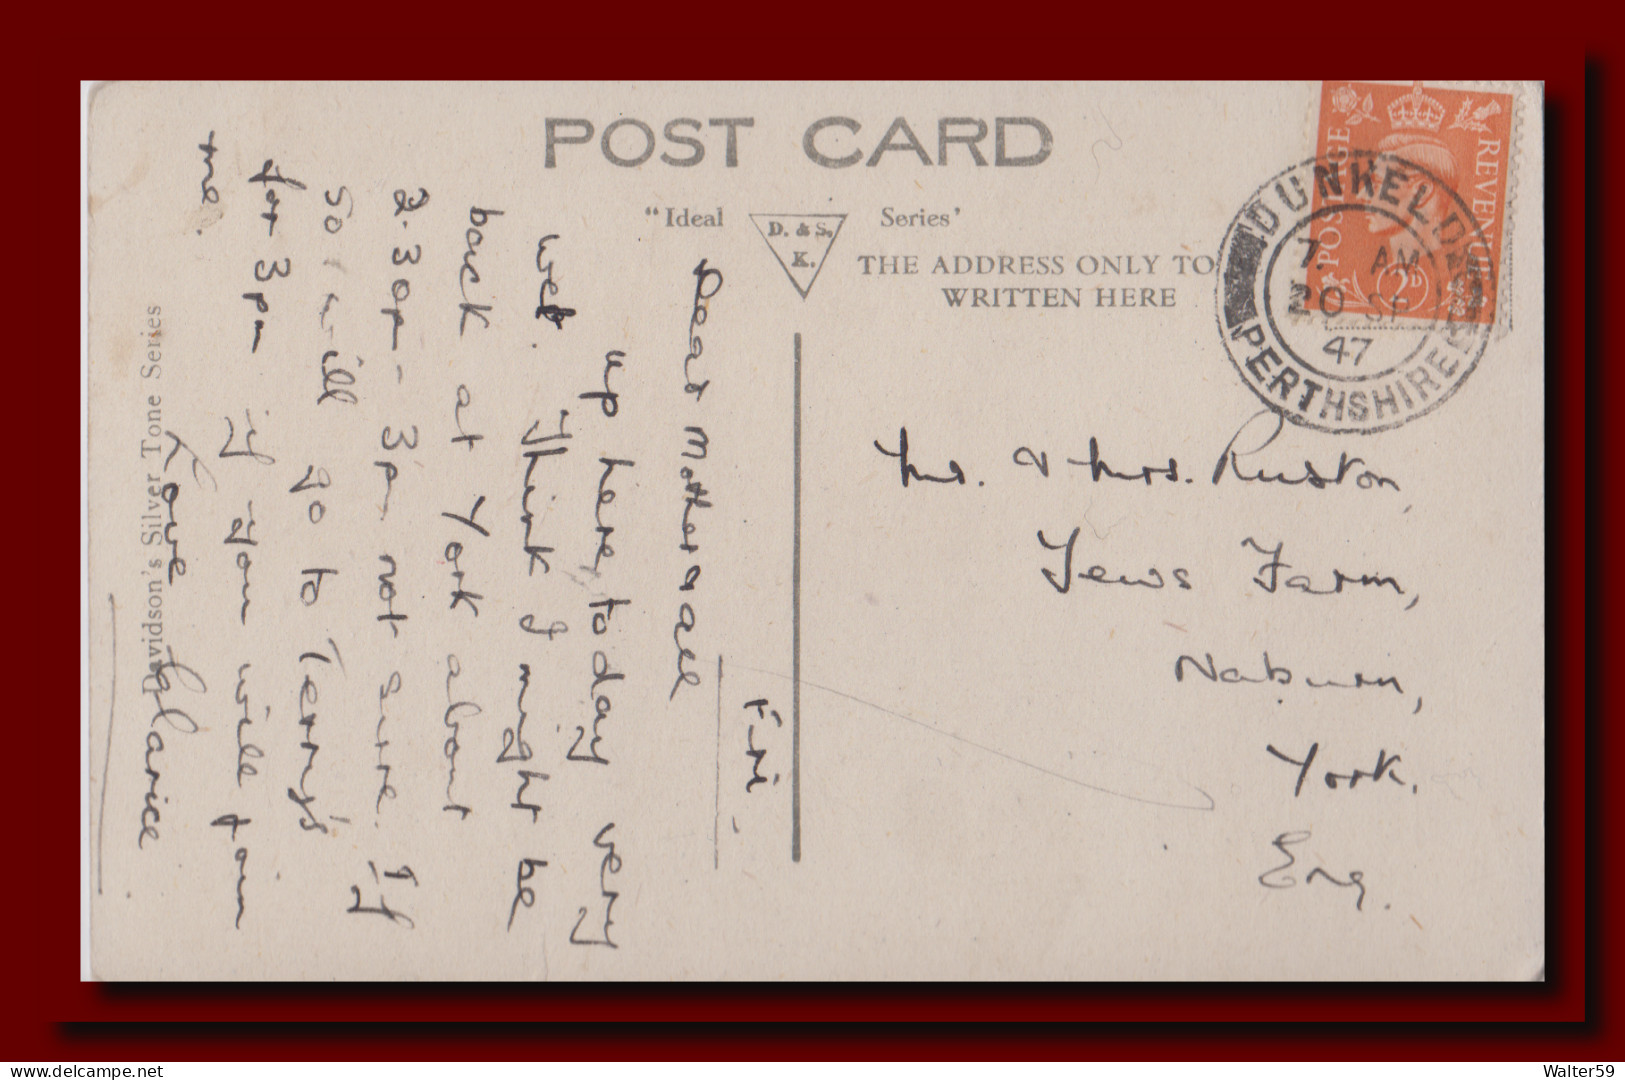 POST CARD
"Ideal D. & S. K. Series'
THE ADDRESS ONLY TO
WRITTEN HERE
POSTAGE REVENUE
2D
DUNKELD
7. AM
20 SP
47
PERTHSHIRE
Mr. & Mrs. Ruston,
Yews Farm,
Naburn,
York.
Eng.
Fri.
Dear Mother & all
up here, today very
wet. Think I might be
back at York about
2.30pm - 3pm not sure. If
so, will go to Terry's
for 3pm if you will join
me.
Love Clarice
Davidson's Silver Tone Series
delcampe.net
Walter59